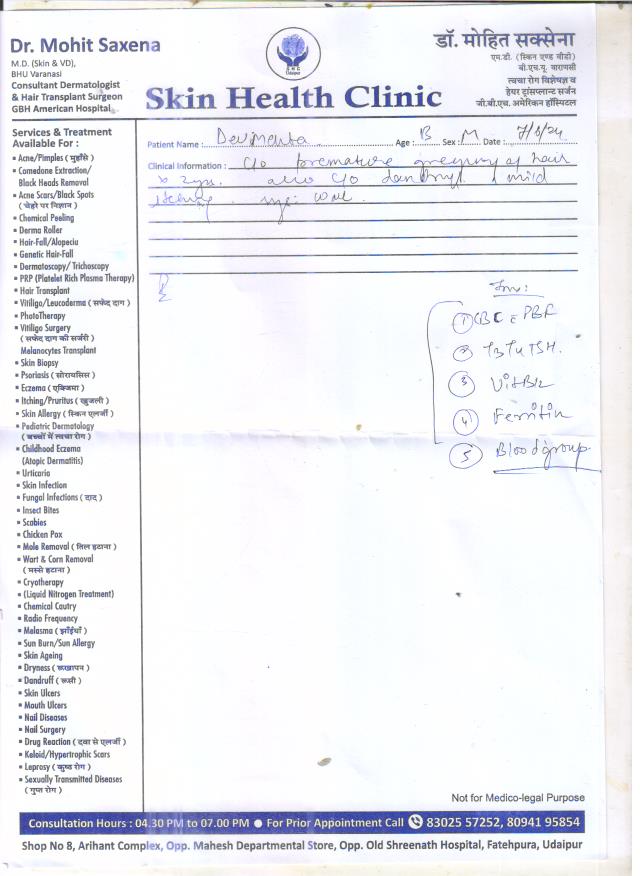 Dr. Mohit Saxena
M.D. (Skin & VD),
BHU Varanasi
Consultant Dermatologist
& Hair Transplant Surgeon
GBH American Hospital
S H C
Udaipur
डॉ. मोहित सक्सेना
एम.डी. (स्किन एण्ड वीडी)
बी.एच.यू. वाराणसी
त्वचा रोग विशेषज्ञ व
हेयर ट्रांसप्लान्ट सर्जन
जी.बी.एच. अमेरिकन हॉस्पिटल
Skin Health Clinic
Services & Treatment
Available For :
Acne/Pimples ( मुहाँसे )
Comedone Extraction/
Black Heads Removal
Acne Scars/Black Spots
( चेहरे पर निशान )
Chemical Peeling
Derma Roller
Hair-Fall/Alopecia
Genetic Hair-Fall
Dermatoscopy/ Trichoscopy
PRP (Platelet Rich Plasma Therapy)
Hair Transplant
Vitiligo/Leucoderma ( सफेद दाग )
PhotoTherapy
Vitiligo Surgery
( सफेद दाग की सर्जरी )
Melanocytes Transplant
Skin Biopsy
Psoriasis ( सोरायसिस )
Eczema ( एक्जिमा )
Itching/Pruritus ( खुजली )
Skin Allergy ( स्किन एलर्जी )
Pediatric Dermatology
( बच्चों में त्वचा रोग )
Childhood Eczema
(Atopic Dermatitis)
Urticaria
Skin Infection
Fungal Infections ( दाद )
Insect Bites
Scabies
Chicken Pox
Mole Removal ( तिल हटाना )
Wart & Corn Removal
( मस्से हटाना )
Cryotherapy
(Liquid Nitrogen Treatment)
Chemical Cautry
Radio Frequency
Melasma ( झाँईयाँ )
Sun Burn/Sun Allergy
Skin Ageing
Dryness ( रूखापन )
Dandruff ( रूसी )
Skin Ulcers
Mouth Ulcers
Nail Diseases
Nail Surgery
Drug Reaction ( दवा से एलर्जी )
Keloid/Hypertrophic Scars
Leprosy ( कुष्ठ रोग )
Sexually Transmitted Diseases
( गुप्त रोग )
Patient Name : Dev Mehta Age : Sex : M Date : 7/8/24
Clinical Information : C/o premature greying of hair
x 2yrs. also C/o dandruff mild
itching.
Inv :
① CBC c PBF
② T3 T4 TSH.
③ Vit B12
④ Ferritin
⑤ Blood group
Not for Medico-legal Purpose
Consultation Hours : 04.30 PM to 07.00 PM ● For Prior Appointment Call 83025 57252, 80941 95854
Shop No 8, Arihant Complex, Opp. Mahesh Departmental Store, Opp. Old Shreenath Hospital, Fatehpura, Udaipur